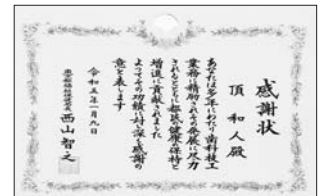 感謝状
頂 和人殿
あなたは多年にわたり歯科技工
業務に精励されその発展に尽力
されるとともに都民の健康の保持と
増進に貢献されました
よってその功績に対し深く感謝の
意を表します
令和五年一月九日
西山智之